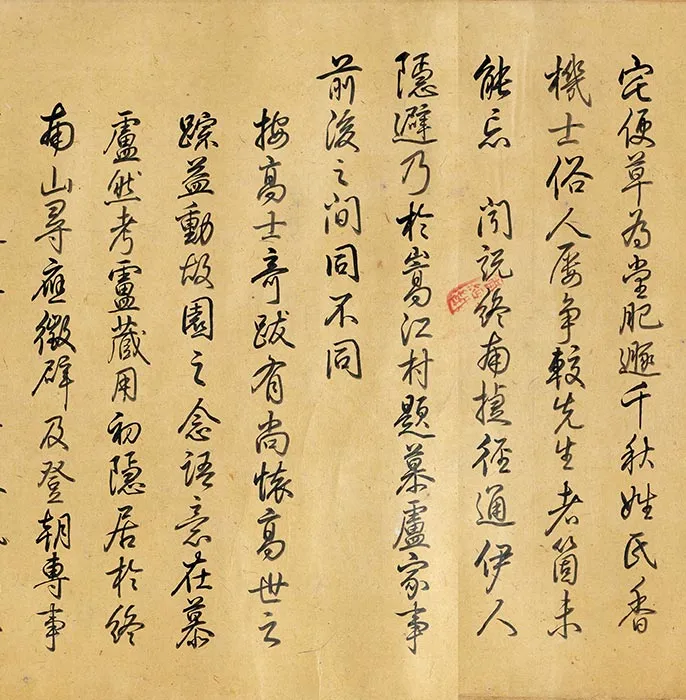 宅便草為堂肥遯千秋姓氏香
機士俗人屢争較先生者箇未
能忘 聞說終南捷徑通伊人
隱避乃於嵩江村題慕盧家事
前後之間同不同
按高士奇跋有尚懷高世之
踪益動故園之念語意在慕
盧然考盧藏用初隱居於終
南山尋應徵辟及登朝專事